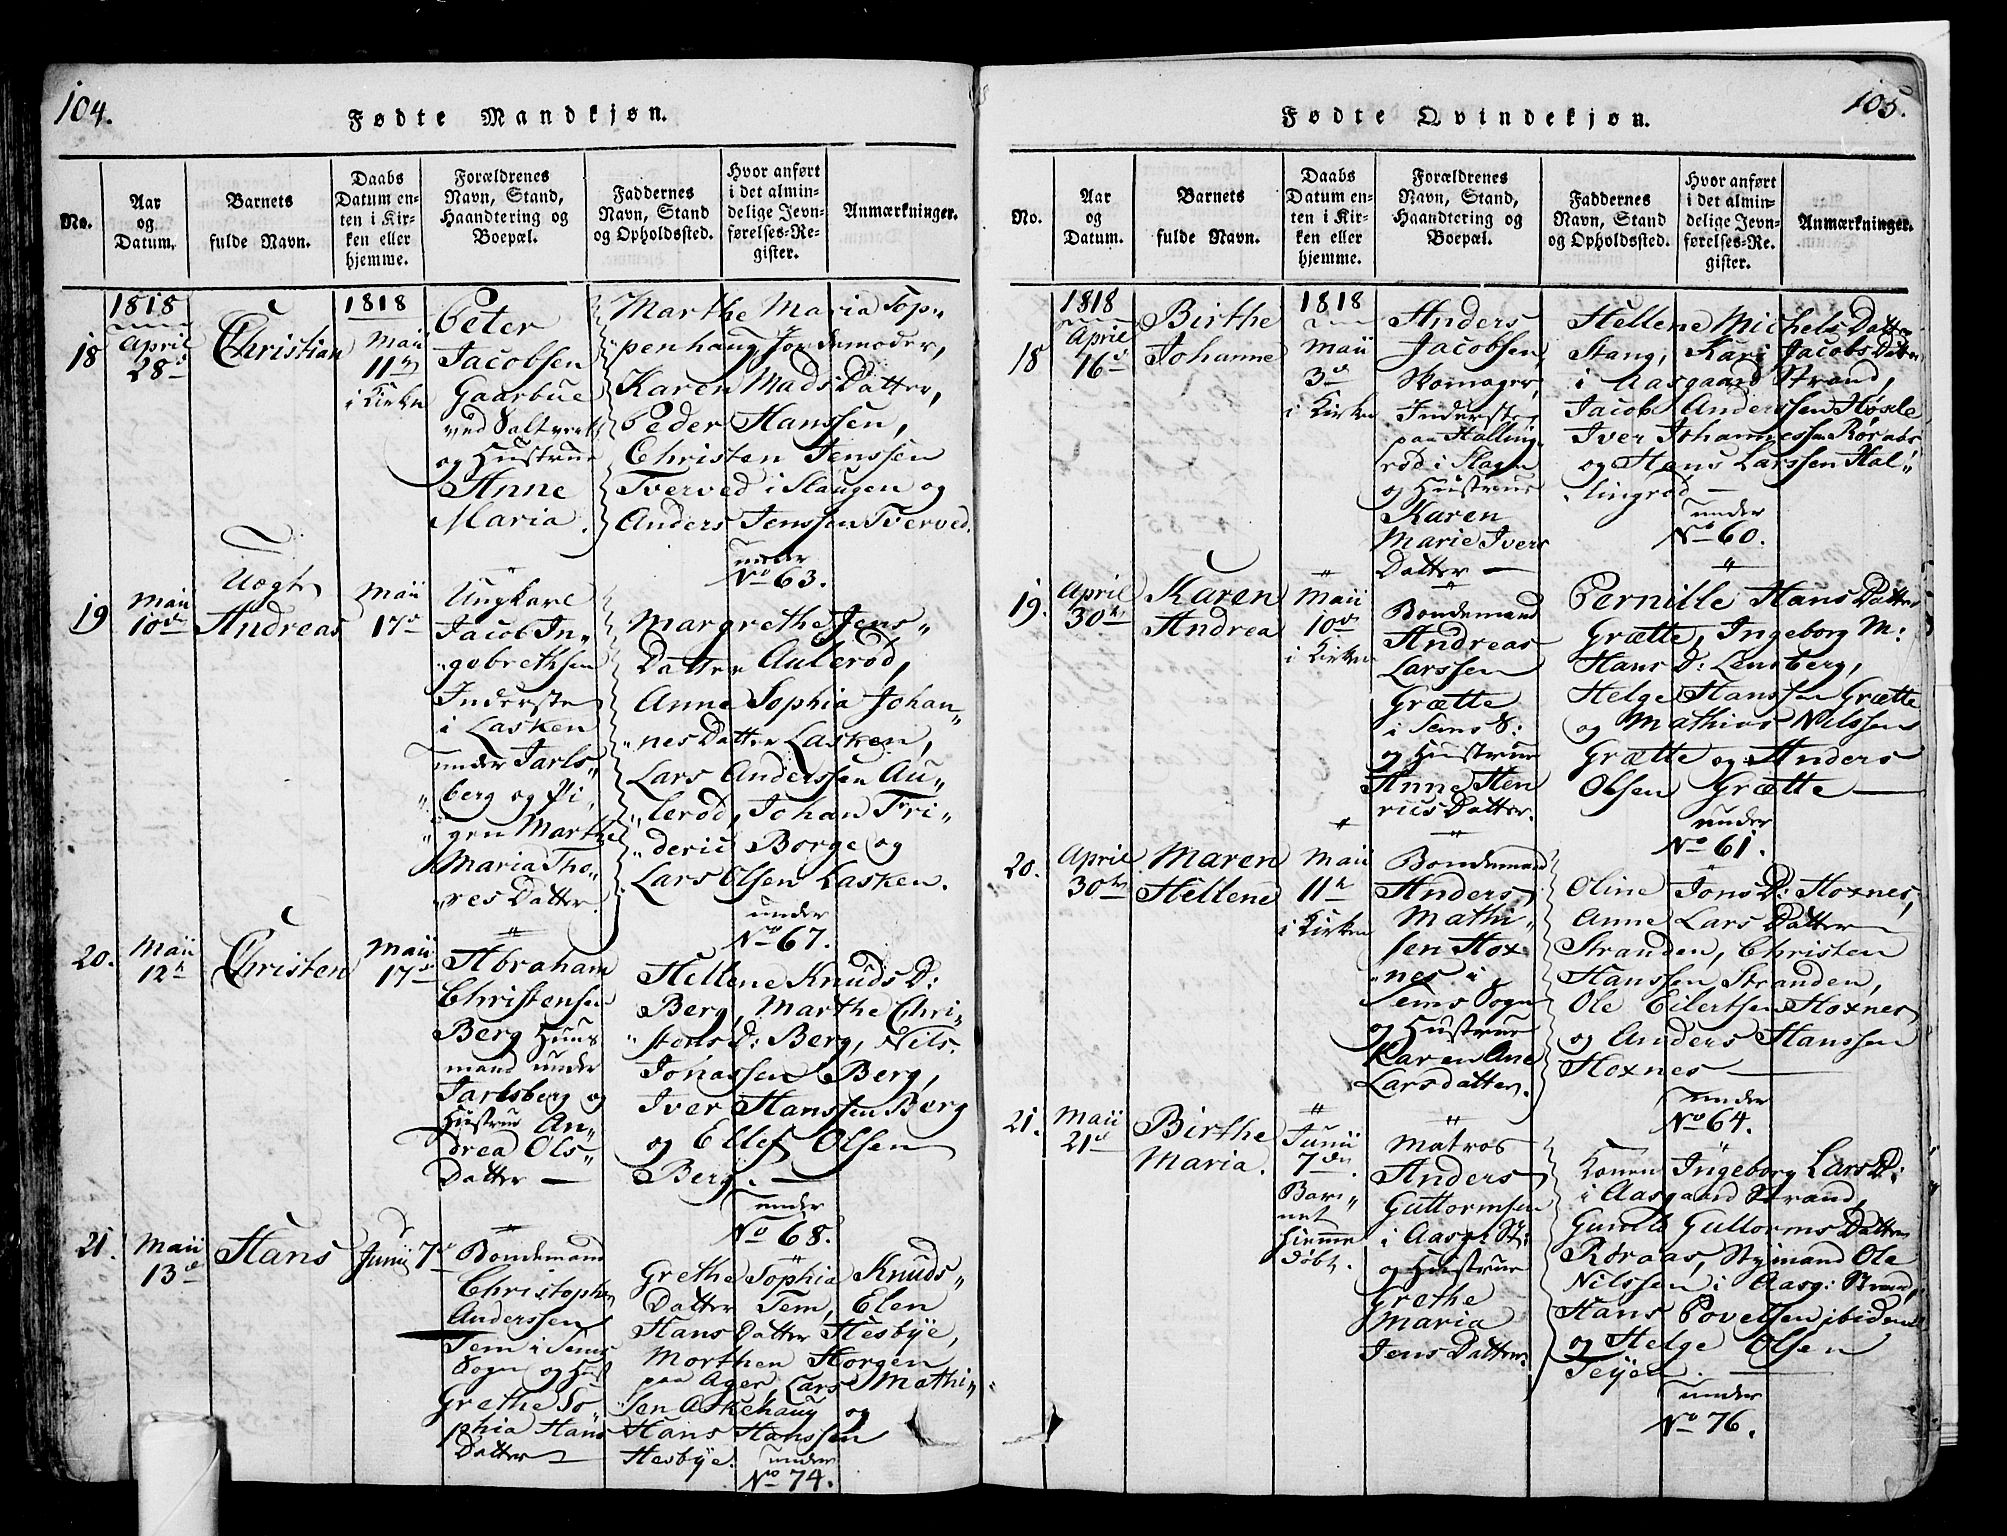 104.
Fødte Mandkjøn.
No.
Aar
og
Datum.
Barnets
fulde Navn.
Daabs
Datum en-
ten i Kir-
ken eller
hjemme.
Forældrenes
Navn, Stand,
Haandtering og
Boepæl.
Faddernes
Navn, Stand
og Opholdssted.
Hvor anført
i det almin-
delige Jevn-
førelses-Re-
gister.
Anmærkninger.
18
1818
April
28d
Christian
1818
Maii
11te
i Kirken
Peter
Jacobsen
Gaarbue
ved Saltverk
og Hustrue
Anne
Maria.
Marthe Maria Top„
„penhaug Jordemoder,
Karen Mads Datter,
Peder Hanssen,
Christen Jenssen
Tverved i Slaugen og
Anders Jenssen Tverved.
under
No 63.
19
Maii
10de
Vogt
Andreas
Maii
17d
Ungkarl
Jacob In„
„gebrethsen
Inderste
i Lasken
under Jarls„
„berg og Pi„
„gen Marthe
Maria Tho„
„res Datter.
Margrethe Jens„
Datter Aulerød,
Anne Sophia Johan„
„nes Datter Lasken,
Lars Anderssen Au„
„lerød, Johan Fri„
„derii Borge og
Lars Olsen Lasken.
under
No 67.
20.
Maii
12te
Christen
Maii
17d
Abraham
Christensen
Berg Huus
mand under
Jarlsberg og
Hustrue An„
drea Ols„
Datter —
Hellene Knuds D:
Berg, Marthe Chri„
„stens D: Berg, Nils
Jonassen Berg,
Iver Hanssen Berg
og Ellef Olsen
Berg. —
under
No 68.
21.
Maii
13d
Hans
Junij 7d
Bondemand
Christopher
Anderssen
Tem i Sems
Sogn og Hust
Grethe So„
phia Hans
Datter —
Grethe Sophia Knuds„
Datter Tem, Elen
Hans Datter Hesbye,
Morthen Horgen
paa Ager, Lars Mathi„
sen Askehaug og
Hans Hanssen
Hesbye.
under
No 74.
105.
Fødte Qvindekjøn.
No.
Aar
og
Datum.
Barnets
fulde Navn.
Daabs
Datum en-
ten i Kir-
ken eller
hjemme.
Forældrenes
Navn, Stand,
Haandtering og
Boepæl.
Faddernes
Navn, Stand
og Opholdssted.
Hvor anført
i det almin-
delige Jevn-
førelses-Re-
gister.
Anmærkninger.
18
1818
April
16d
Birthe
Johanne
1818
Maii
3d
i Kirken
Anders
Jacobsen
Skomager,
Inderste
paa Halling„
rød i Slagen
og Hustrue
Karen
Marie Ivers
Datter —
Hellene Michels Datter
Stang, Kari Jacobs Datter
i Aasgaard Strand,
Jacob Anderssen Høsle
Iver Johannessen Røraas
og Hans Larssen Hal„
„lingrød —
under
No 60.
19.
April
30te
Karen
Andrea
Maii
10de
i Kirken
Bondemand
Andreas
Larssen
Grætte
i Sems S:
og Hustrue
Anne Hen
rics Datter.
Pernille Hans Datter
Grætte, Ingeborg M:
Hans D: Lensberg,
Helge Hanssen Grætte
og Mathias Nilssen
Grætte og Anders
Olsen Grætte —
under
No 61.
20.
April
30te
Maren
Hellene
Maii
11te
i Kirken
Bondemand
Anders
Mathi„
sen Hox
„nes i
Sems Sogn
og Hustrue
Karen Ane
Larsdatter.
Oline Jons D: Hoxnes,
Anne Lars Datter
Stranden, Christen
Hanssen Stranden,
Ole Eilertsen Hoxnes
og Anders Hanssen
Hoxnes —
under
No 64.
21.
Maii
21d
Birthe
Maria.
Junii
7de
Bari„
net
hiemme
døbt.
Matros
Anders
Guttormsen
i Aasg: St:
og Hustrue
Grethe
Maria
Jens Datter.
Konen Ingeborg Lars D:
i Aasgaard Strand,
Gunild Guttorms Datter
Røraas, Styrmand Ole
Nilssen i Aasg: Strand,
Hans Povelsen ibidem
og Helge Olsen
Teijen. —
under
No 76.